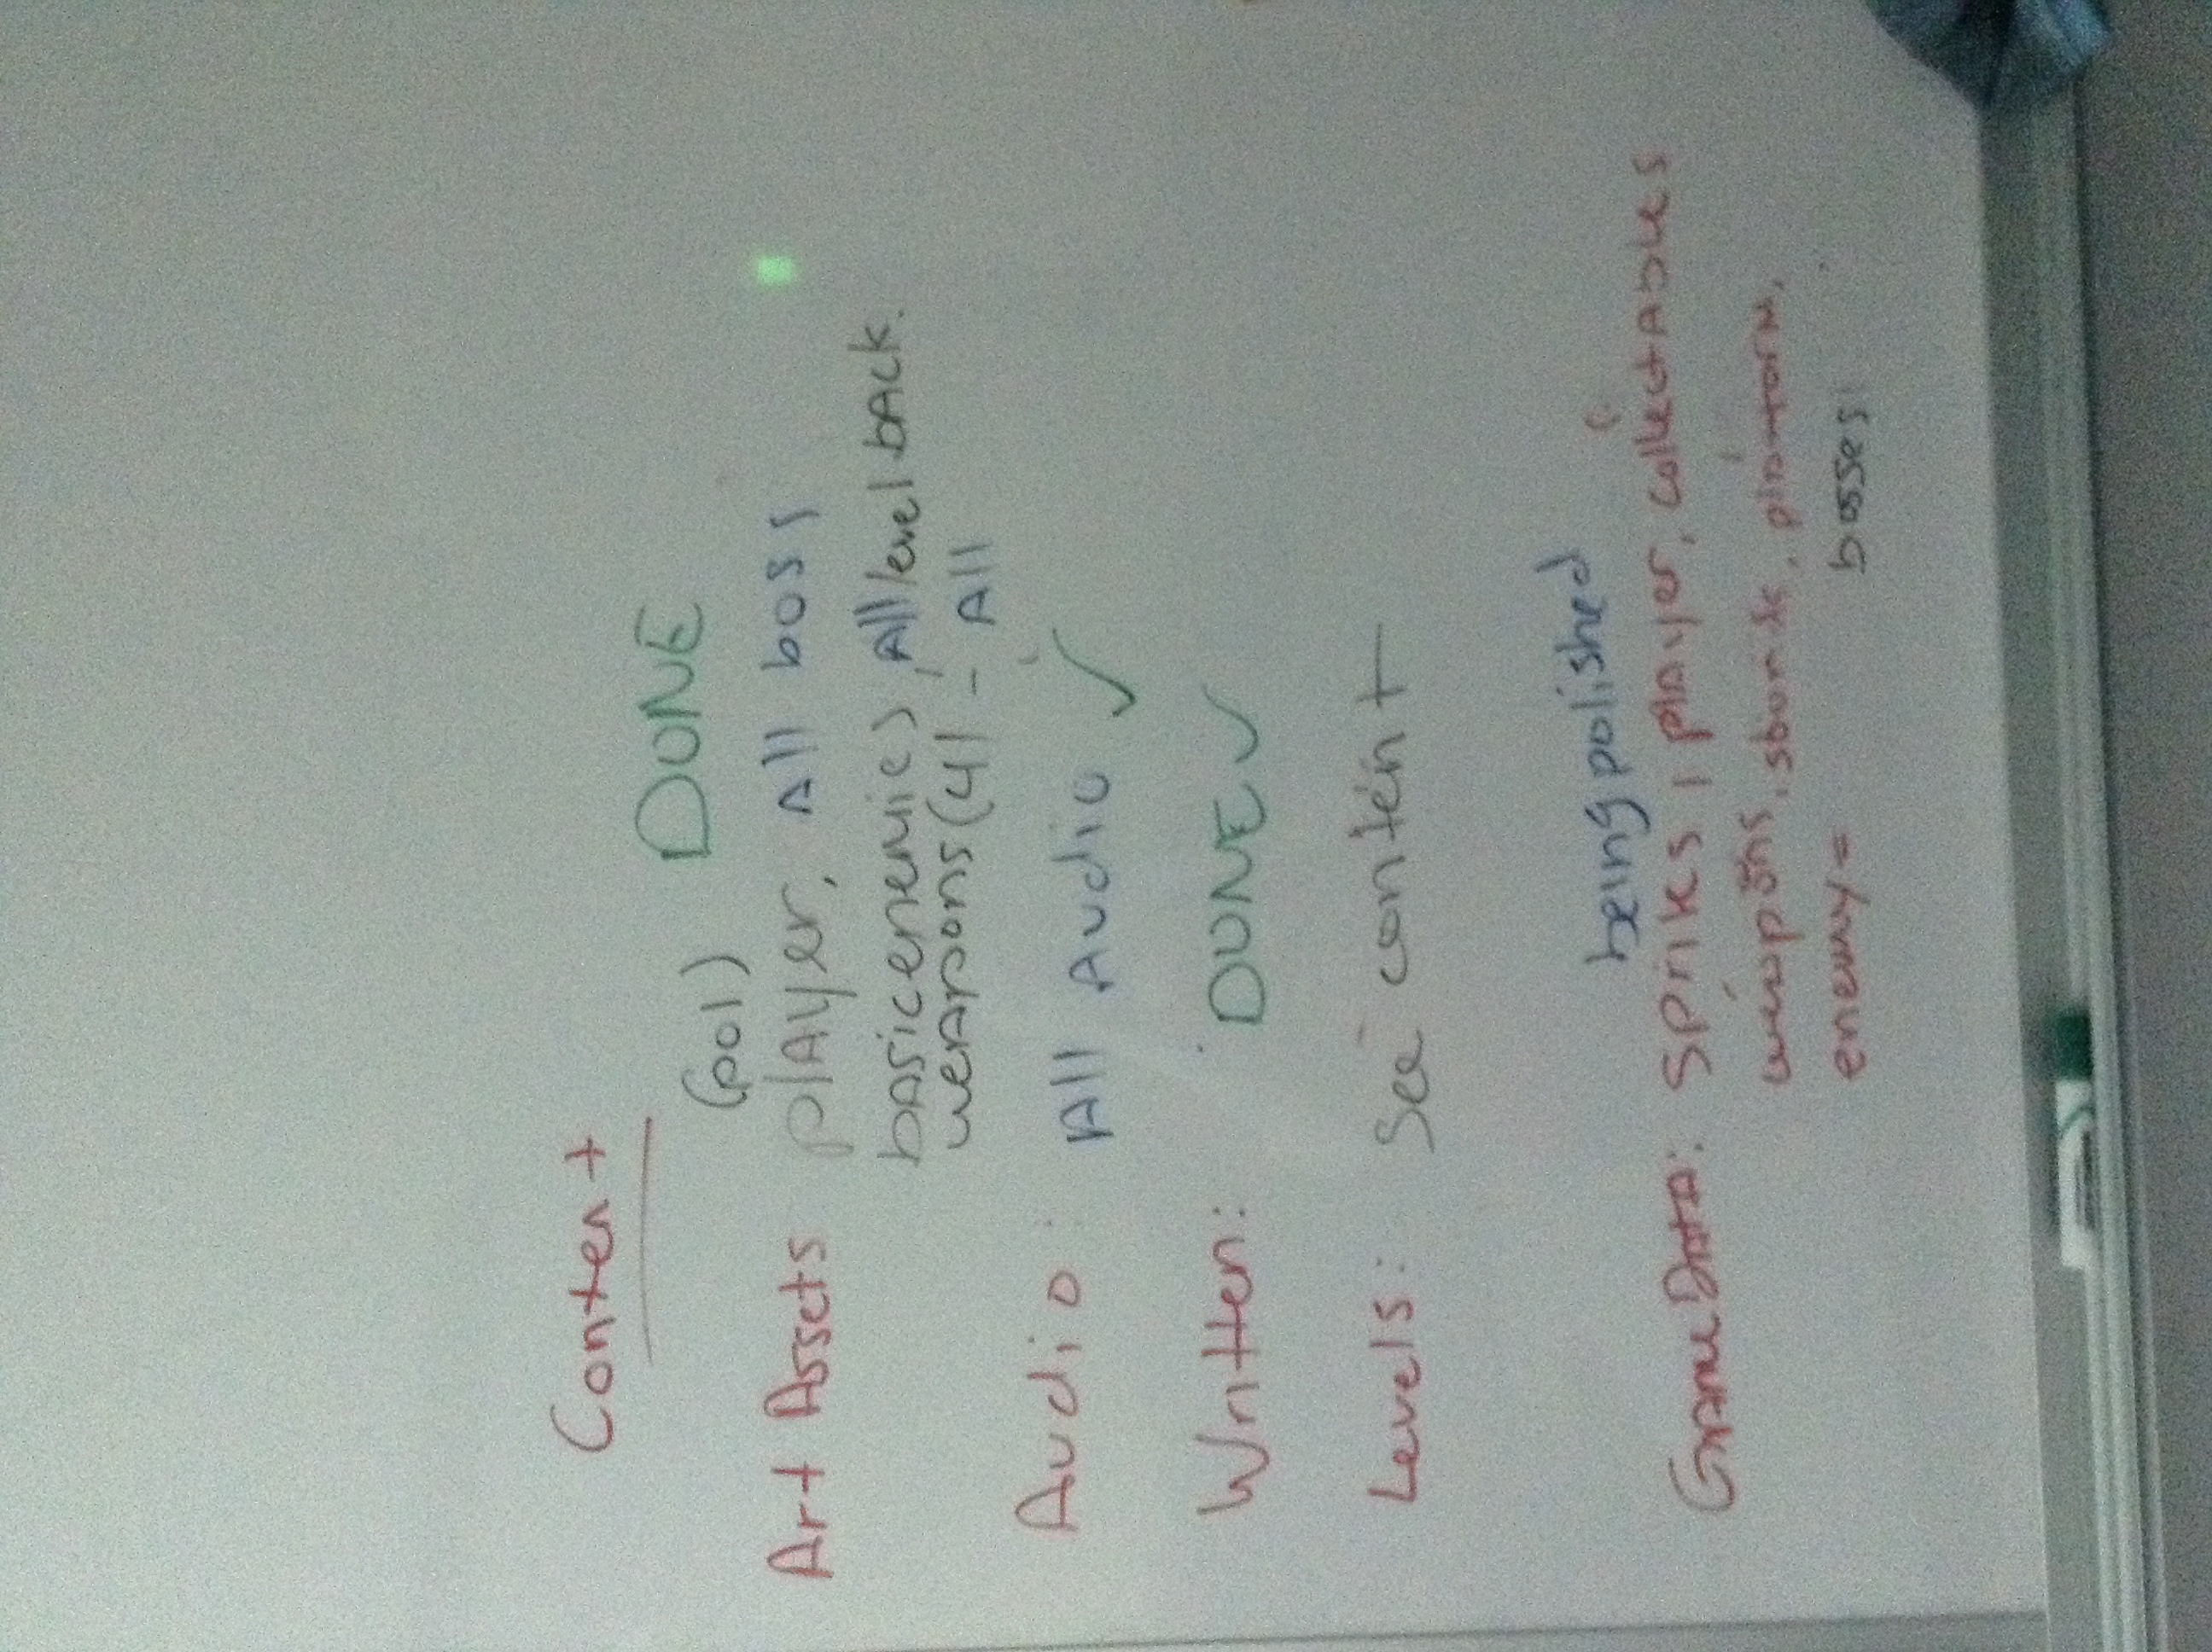 Content
DONE
(pol)
Art Assets player, All boss
basic enemies, All level back.
weapons (4) - All
Audio: All Audio ✓
Written: DONE ✓
Levels: See content
being polished
Game Data: player, collectables
weapons, platform,
enemy - bosses